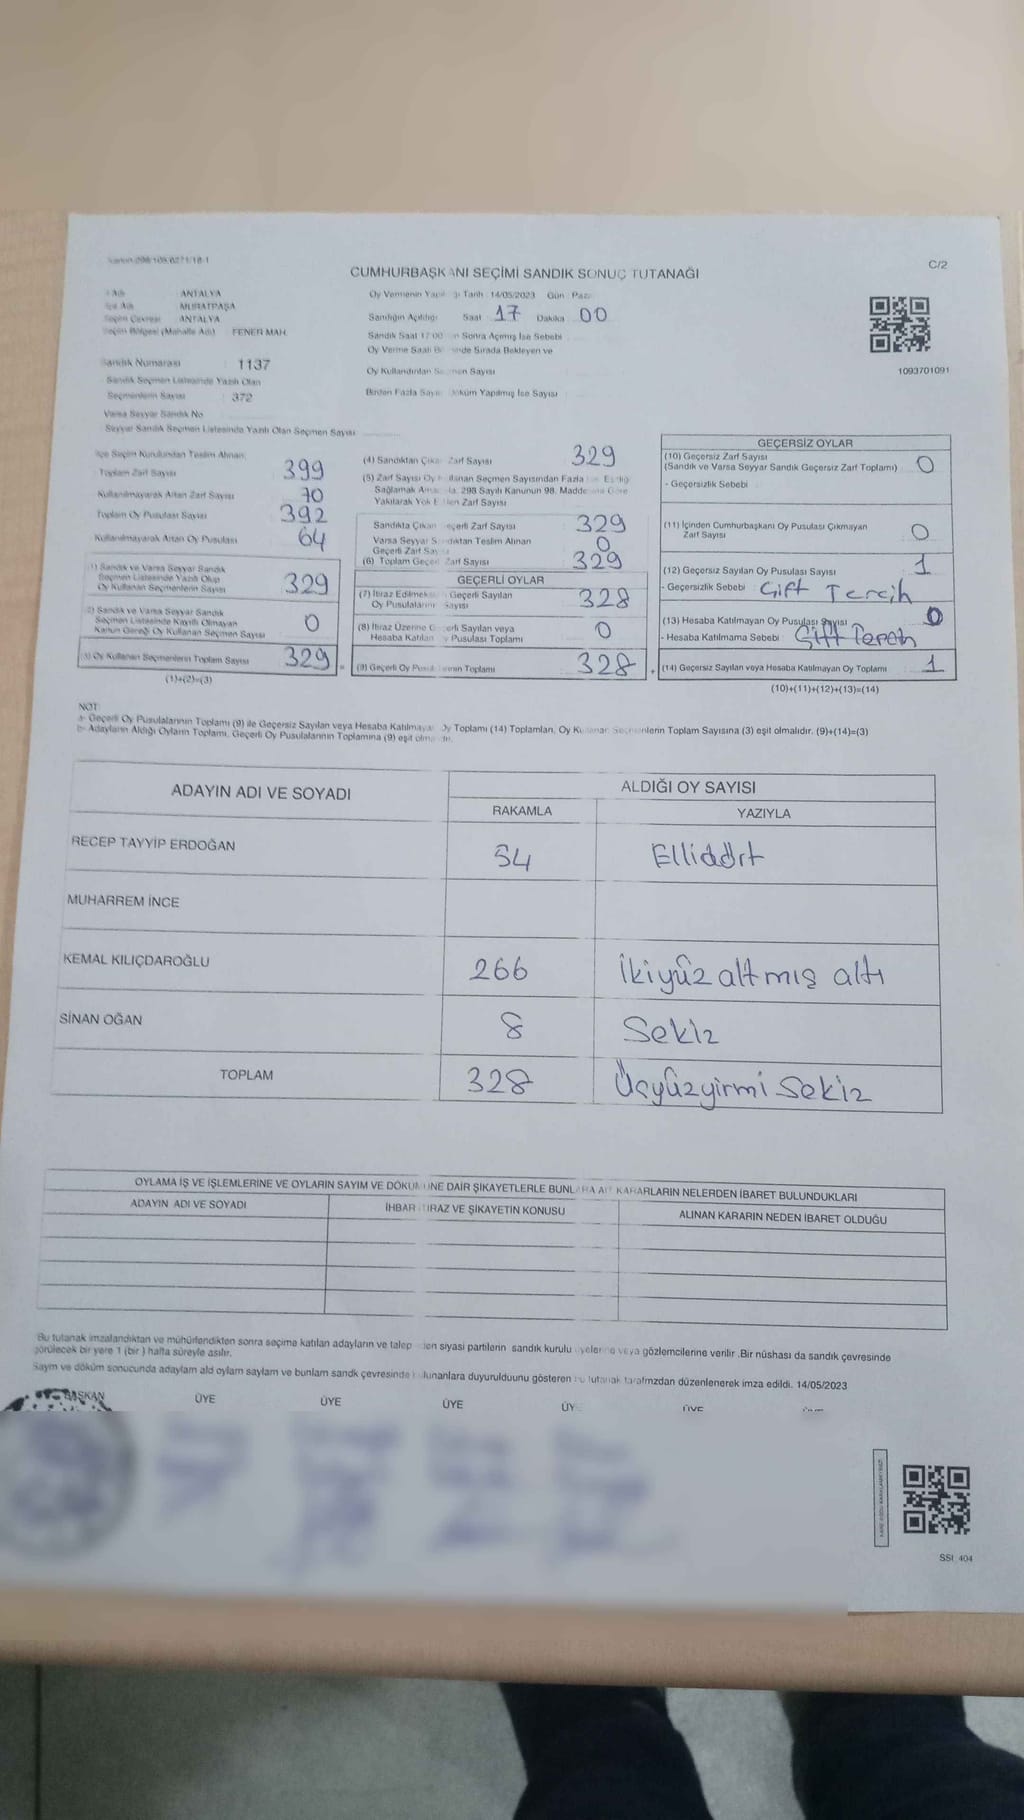 C/2
CUMHURBAŞKANI SEÇİMİ SANDIK SONUÇ TUTANAĞI
İl Adı ANTALYA
İlçe Adı MURATPAŞA
Seçim Çevresi ANTALYA
Seçim Bölgesi (Mahalle Adı) FENER MAH.
Sandık Numarası : 1137
Sandık Seçmen Listesinde Yazılı Olan
Seçmenlerin Sayısı : 372
Varsa Seyyar Sandık No
Seyyar Sandık Seçmen Listesinde Yazılı Olan Seçmen Sayısı
Oy Vermenin Tarih 14/05/2023 Gün
Sandığın Açıldığı Saat : 17 Dakika : 00
Sandık Saat 17:00 Sonra Açmış İse Sebebi
Oy Verme Saati Sırada Bekleyen ve
Oy Kullandırılan Sayısı
Birden Fazla Sayım Döküm Yapılmış İse Sayısı
1093701091
İlçe Seçim Kurulundan Teslim Alınan
Toplam Zarf Sayısı 399
Kullanılmayarak Artan Zarf Sayısı 70
Toplam Oy Pusulası Sayısı 392
Kullanılmayarak Artan Oy Pusulası 64
(1) Sandık ve Varsa Seyyar Sandık
Seçmen Listesinde Yazılı Olup
Oy Kullanan Seçmenlerin Sayısı 329
(2) Sandık ve Varsa Seyyar Sandık
Seçmen Listesinde Kayıtlı Olmayan
Kanun Gereği Oy Kullanan Seçmen Sayısı 0
(3) Oy Kullanan Seçmenlerin Toplam Sayısı 329
(1)+(2)=(3)
(4) Sandıktan Çıkan Zarf Sayısı 329
(5) Zarf Sayısı Oy Kullanan Seçmen Sayısından Fazla
Sağlamak 298 Sayılı Kanunun 98. Maddesine Göre
Yakılarak Yok Edilen Zarf Sayısı
Sandıkta Çıkan Geçerli Zarf Sayısı 329
Varsa Seyyar Sandıktan Teslim Alınan
Geçerli Zarf Sayısı 0
(6) Toplam Geçerli Zarf Sayısı 329
GEÇERLİ OYLAR
(7) İtiraz Edilmeksizin Geçerli Sayılan
Oy Pusulalarının Sayısı 328
(8) İtiraz Üzerine Geçerli Sayılan veya
Hesaba Katılan Oy Pusulası Toplamı 0
(9) Geçerli Oy Pusulalarının Toplamı 328
GEÇERSİZ OYLAR
(10) Geçersiz Zarf Sayısı
(Sandık ve Varsa Seyyar Sandık Geçersiz Zarf Toplamı) 0
- Geçersizlik Sebebi
(11) İçinden Cumhurbaşkanı Oy Pusulası Çıkmayan
Zarf Sayısı 0
(12) Geçersiz Sayılan Oy Pusulası Sayısı 1
- Geçersizlik Sebebi : Çift Tercih
(13) Hesaba Katılmayan Oy Pusulası Sayısı 0
- Hesaba Katılmama Sebebi : Çift Tercih
(14) Geçersiz Sayılan veya Hesaba Katılmayan Oy Toplamı 1
(10)+(11)+(12)+(13)=(14)
NOT:
a- Geçerli Oy Pusulalarının Toplamı (9) ile Geçersiz Sayılan veya Hesaba Katılmayan Oy Toplamı (14) Toplamları, Oy Kullanan Seçmenlerin Toplam Sayısına (3) eşit olmalıdır. (9)+(14)=(3)
b- Adayların Aldığı Oyların Toplamı, Geçerli Oy Pusulalarının Toplamına (9) eşit olmalıdır.
ADAYIN ADI VE SOYADI
ALDIĞI OY SAYISI
RAKAMLA YAZIYLA
RECEP TAYYİP ERDOĞAN 54 Ellidört
MUHARREM İNCE
KEMAL KILIÇDAROĞLU 266 İkiyüz altmış altı
SİNAN OĞAN 8 Sekiz
TOPLAM 328 Üçyüzyirmi Sekiz
OYLAMA İŞ VE İŞLEMLERİNE VE OYLARIN SAYIM VE DÖKÜMÜNE DAİR ŞİKAYETLERLE BUNLARA AİT KARARLARIN NELERDEN İBARET BULUNDUKLARI
ADAYIN ADI VE SOYADI İHBAR İTİRAZ VE ŞİKAYETİN KONUSU ALINAN KARARIN NEDEN İBARET OLDUĞU
Bu tutanak imzalandıktan ve mühürlendikten sonra seçime katılan adayların ve talep eden siyasi partilerin sandık kurulu üyelerine veya gözlemcilerine verilir .Bir nüshası da sandık çevresinde
görülecek bir yere 1 (bir ) hafta süreyle asılır.
Saym ve döküm sonucunda adaylam ald oylam saylam ve bunlam sandk çevresinde bulunanlara duyurulduunu gösteren bu tutanak tarafmzdan düzenlenerek imza edildi. 14/05/2023
BAŞKAN ÜYE ÜYE ÜYE ÜYE ÜYE
SSI: 404